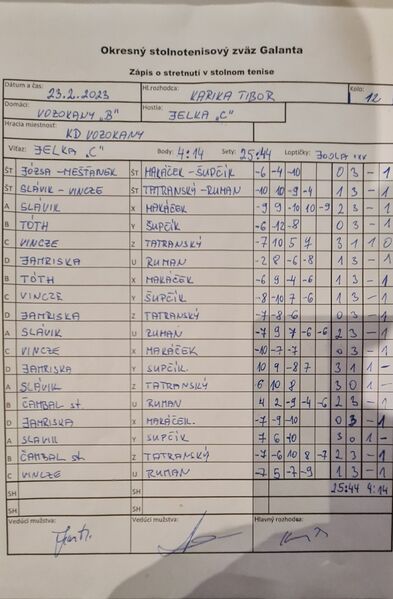 Okresný stolnotenisový zväz Galanta
Zápis o stretnutí v stolnom tenise
Dátum a čas: 23.2.2023 Hl.rozhodca: KARIKA TIBOR Kolo: 12
Domáci: VOZOKANY „B" Hostia: JELKA „C"
Hracia miestnosť: KD VOZOKANY
Víťaz: JELKA „C" Body: 4:14 Sety: 25:44 Loptičky: JOOLA
ŠT JÓZSA - MEŠŤANEK ŠT MAKÁČEK - ŠUPČÍK -6 -4 -10 0 3 - 1
ŠT SLÁVIK - VINCZE ŠT TATRANSKÝ - RUMAN -10 10 -9 -4 1 3 - 1
A SLÁVIK X MAKÁČEK -9 9 -10 10 -9 2 3 - 1
B TÓTH Y ŠUPČÍK -6 -12 -8 0 3 - 1
C VINCZE Z TATRANSKÝ -7 10 5 7 3 1 1 0
D JAMRISKA U RUMAN -2 8 -6 -8 1 3 - 1
B TÓTH X MAKÁČEK -6 9 -4 -6 1 3 - 1
C VINCZE Y ŠUPČÍK -8 -10 7 -6 1 3 - 1
D JAMRISKA Z TATRANSKÝ -7 -8 -6 0 3 - 1
A SLÁVIK U RUMAN -7 9 7 -6 -6 2 3 - 1
C VINCZE X MAKÁČEK -10 -7 -7 0 3 - 1
D JAMRISKA Y SUPČÍK 10 9 -8 7 3 1 1 -
A SLÁVIK Z TATRANSKÝ 6 10 8 3 0 1 -
B ČAMBAL st. U RUMAN 4 2 -9 -4 -6 2 3 - 1
D JAMRISKA X MAKÁČEK -7 -9 -10 0 3 - 1
A SLAVIK Y SUPČÍK 7 6 10 3 0 1 -
B ČAMBAL st. Z TATRANSKÝ -7 -6 10 8 -7 2 3 - 1
C VINCZE U RUMAN -7 5 -7 -9 1 3 - 1
SH SH 25:44 4:14
SH SH
Vedúci mužstva: Vedúci mužstva: Hlavný rozhodca: